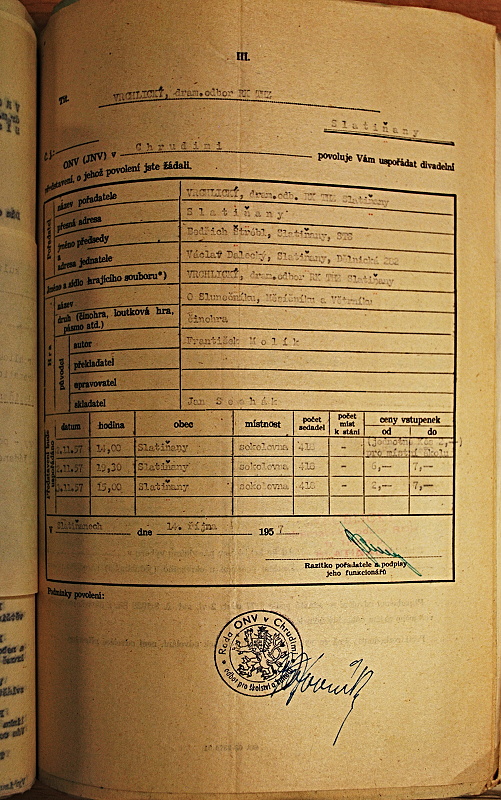 III.
TH. VRCHLICKÝ, dram.odbor RK TMZ
Slatiňany
ONV (JNV) v Chrudimi povoluje Vám uspořádat divadelní
představení, o jehož povolení jste žádali.
Pořadatel
název pořadatele VRCHLICKÝ, dram.odb. RK TMZ Slatiňany
přesná adresa Slatiňany
jméno předsedy Bedřich Štrébl, Slatiňany,
a
adresa jednatele Václav Dalecký, Slatiňany, Dělnická
Jméno a sídlo hrajícího souboru*) VRCHLICKÝ, dram.odbor RK TMZ Slatiňany
Hra
název O Slunečníku, Měsíčníku a Větrníku
druh (činohra, loutková hra, pásmo atd.) činohra
původci
autor František
překladatel
upravovatel
skladatel Jan Seehák
Představení bude uspořádáno
datum hodina obec místnost počet sedadel počet míst k stání ceny vstupenek od do
.11.57 14,00 Slatiňany sokolovna 418 - (jednotné Kčs 2,—) pro místní školu
.11.57 19,30 Slatiňany sokolovna 418 - 6,— 7,—
.11.57 15,00 Slatiňany sokolovna 418 - 2,— 7,—
V Slatiňanech dne 14. října 1957
Razítko pořadatele a podpisy
jeho funkcionářů
Podmínky povolení:
Rada ONV v Chrudimi
odbor pro školství a kulturu